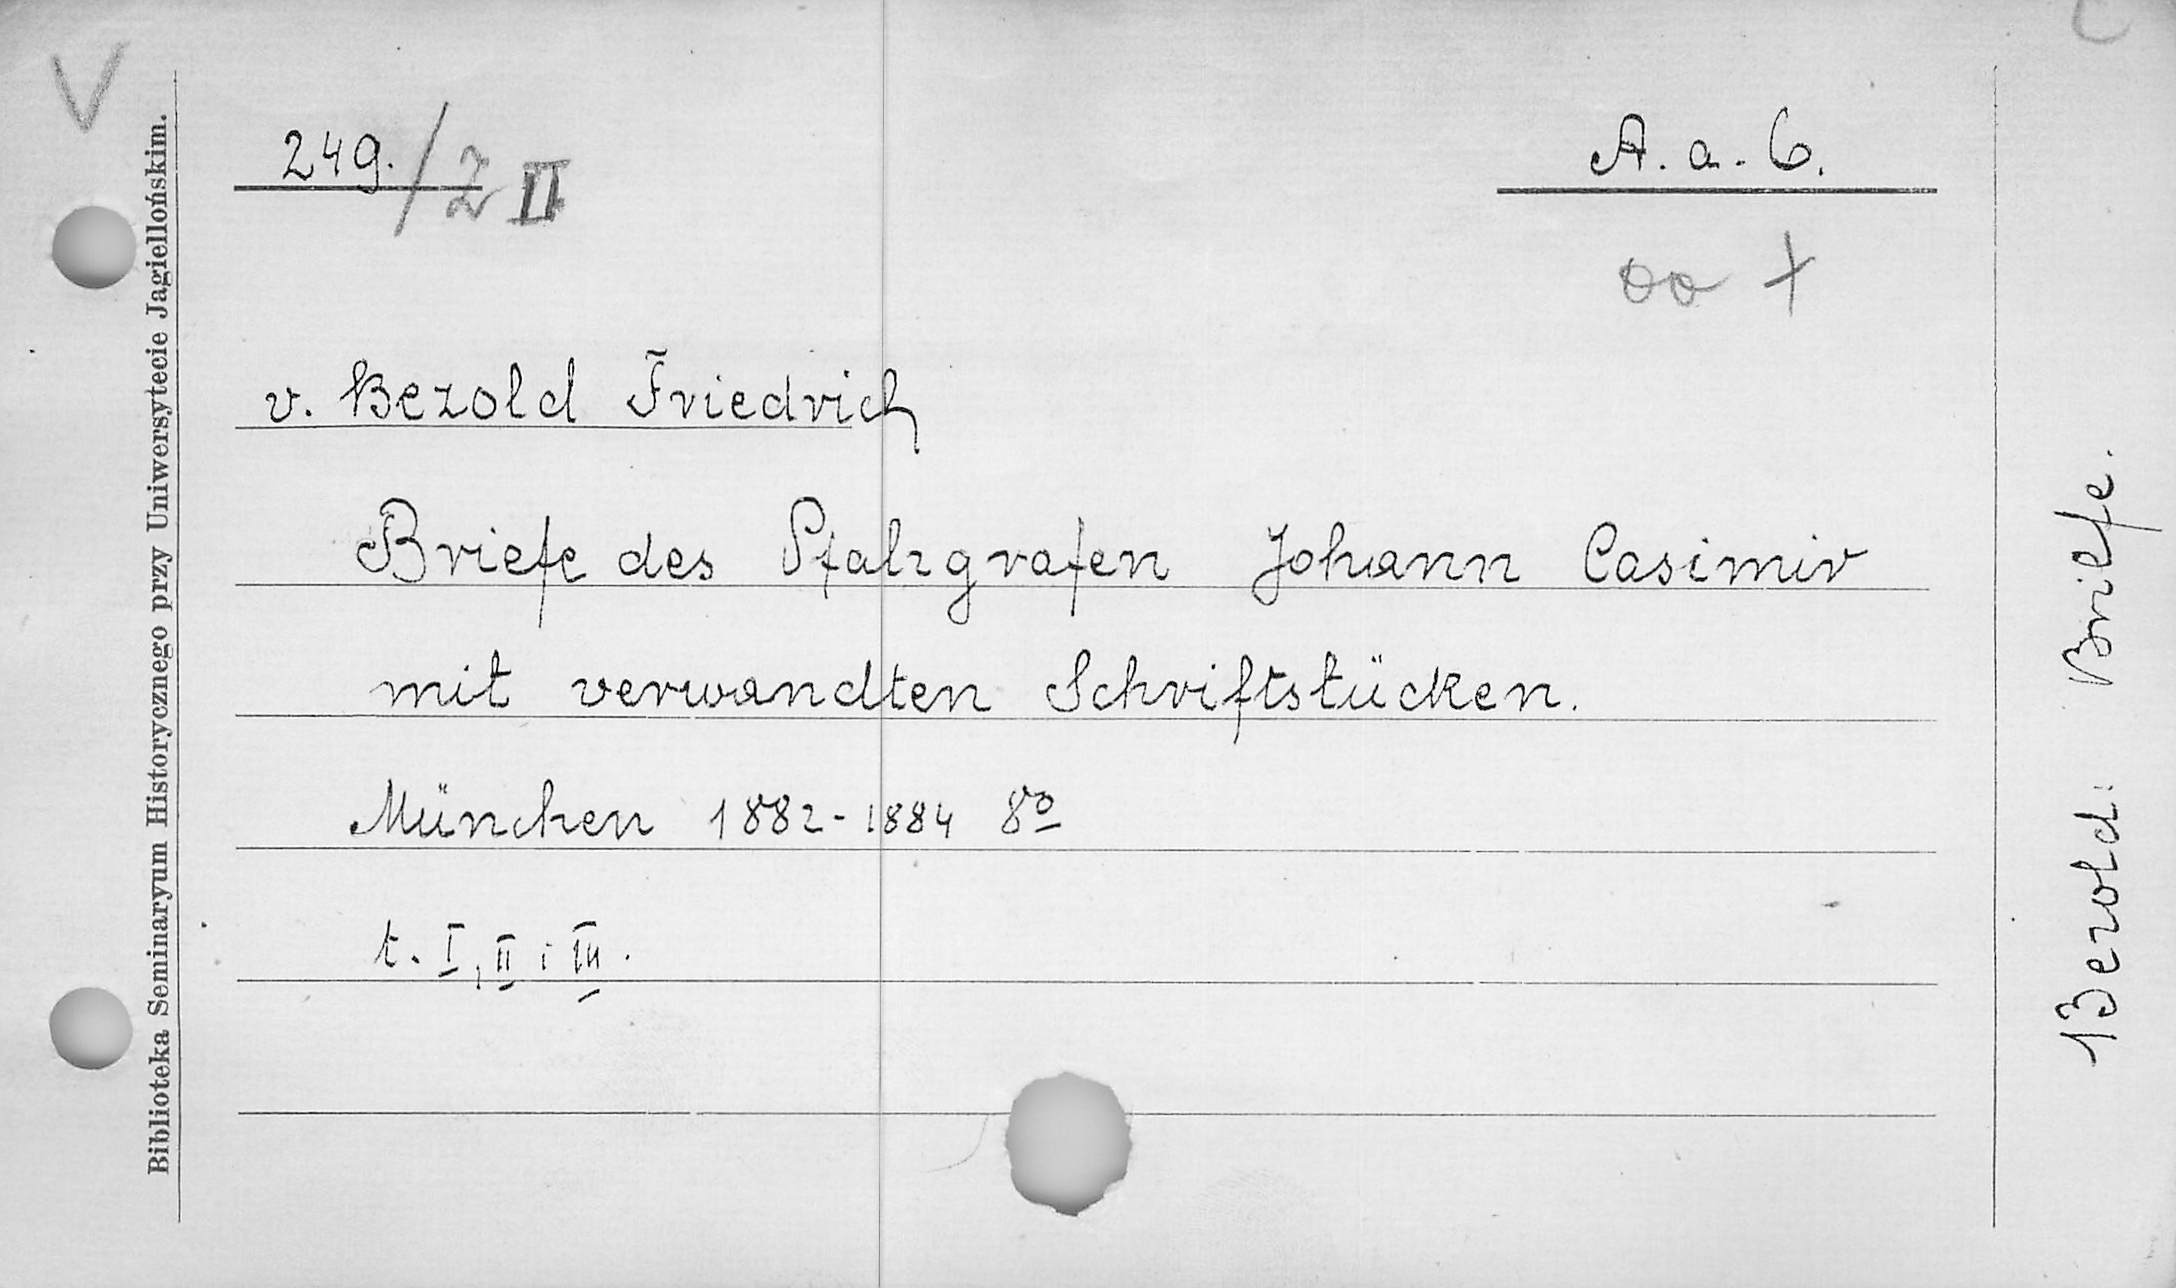 V
249. / Z II
A. a. 6.
oo +
v. Bezold Friedrich
Briefe des Pfalzgrafen Johann Casimir
mit verwandten Schriftstücken.
München 1882-1884 8º
t. I, II i III.
Bezold: Briefe.
Biblioteka Seminaryum Historycznego przy Uniwersytecie Jagiellońskim.